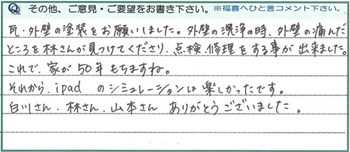 Q その他、ご意見・ご要望をお書き下さい。※福喜へひと言コメント下さい。
瓦・外壁の塗装をお願いしました。外壁の洗浄の時、外壁の痛んだ
ところを林さんが見つけてくださり、点検、修理をする事が出来ました。
これで、家が50年もちますね。
それから、ipad のシミュレーションは楽しかったです。
白川さん、林さん、山本さん ありがとうございました。